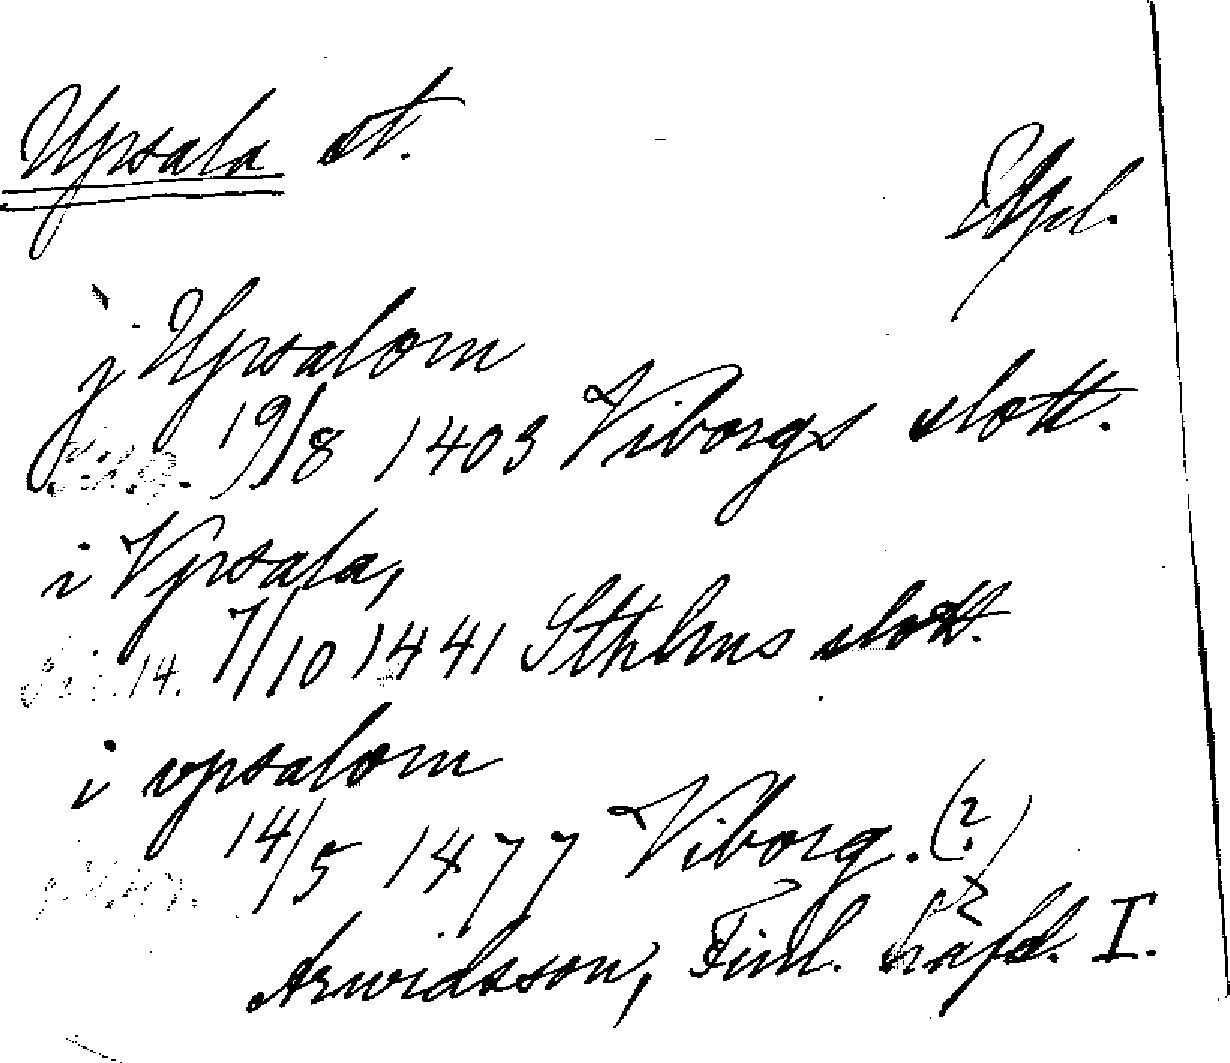 Upsala st.
Uppl.
j Upsalom
19/8 1403 Viborgs slott.
i Vpsala,
14. 7/10 1441 Sthlms slott.
i vpsalom
14/5 1477 Viborg. (?)
Arwidsson, Finl. häfd. I.